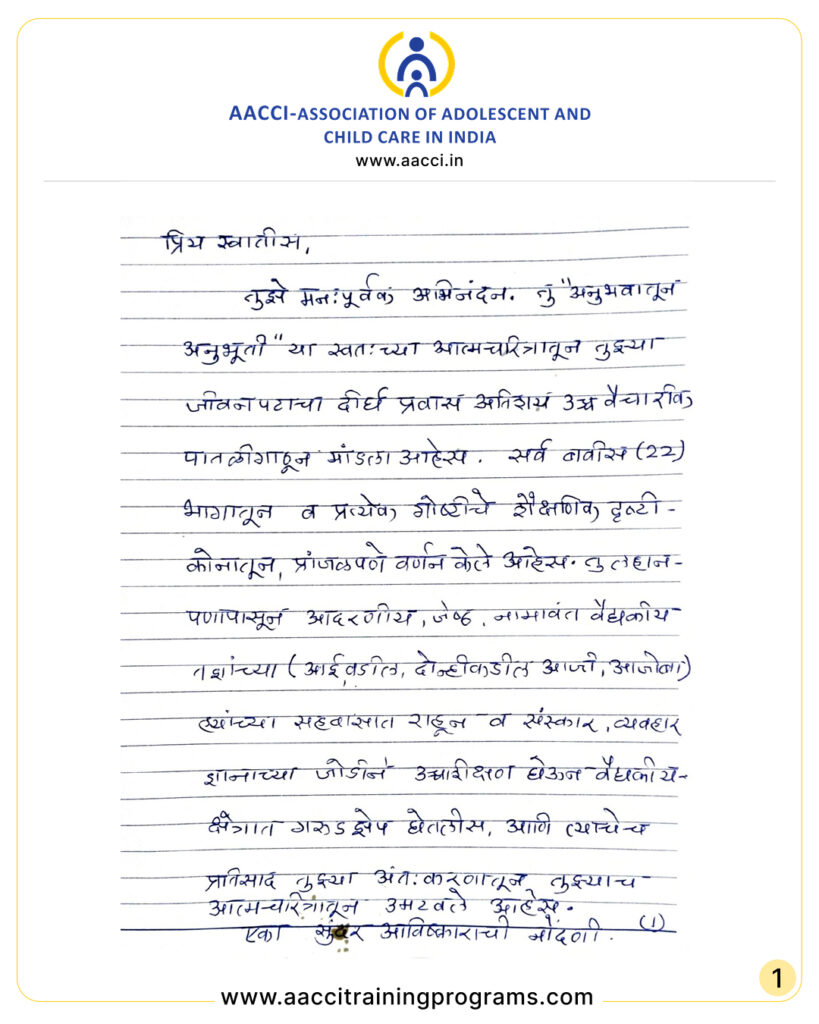 AACCI-ASSOCIATION OF ADOLESCENT AND
CHILD CARE IN INDIA
www.aacci.in
प्रिय स्वातीस,
तुझे मनःपूर्वक अभिनंदन. तु "अनुभवातून
अनुभूती" या स्वतःच्या आत्मचरित्रातून तुझ्या
जीवनपटाचा दीर्घ प्रवास अतिशय उच्च वैचारीक
पातळीगाठून मांडला आहेस. सर्व बावीस (22)
भागातून व प्रत्येक गोष्टीचे शैक्षणिक दृष्टी-
कोनातून, प्रांजळपणे वर्णन केले आहेस. तु लहान-
पणापासून आदरणीय, जेष्ठ, नामावंत वैद्यकीय
तज्ञांच्या (आईवडील, दोन्हीकडील आजी, आजोबा)
त्यांच्या सहवासात राहून व संस्कार, व्यवहार
ज्ञानाच्या जोडीने उच्चशिक्षण घेऊन वैद्यकीय-
क्षेत्रात गरुडझेप घेतलीस, आणि त्याचेच
प्रतिसाद तुझ्या अंतःकरणातून तुझ्याच
आत्मचरित्रातून उमटवले आहेस.
एका सुंदर आविष्काराची नोंदणी. (1)
1
www.aaccitrainingprograms.com